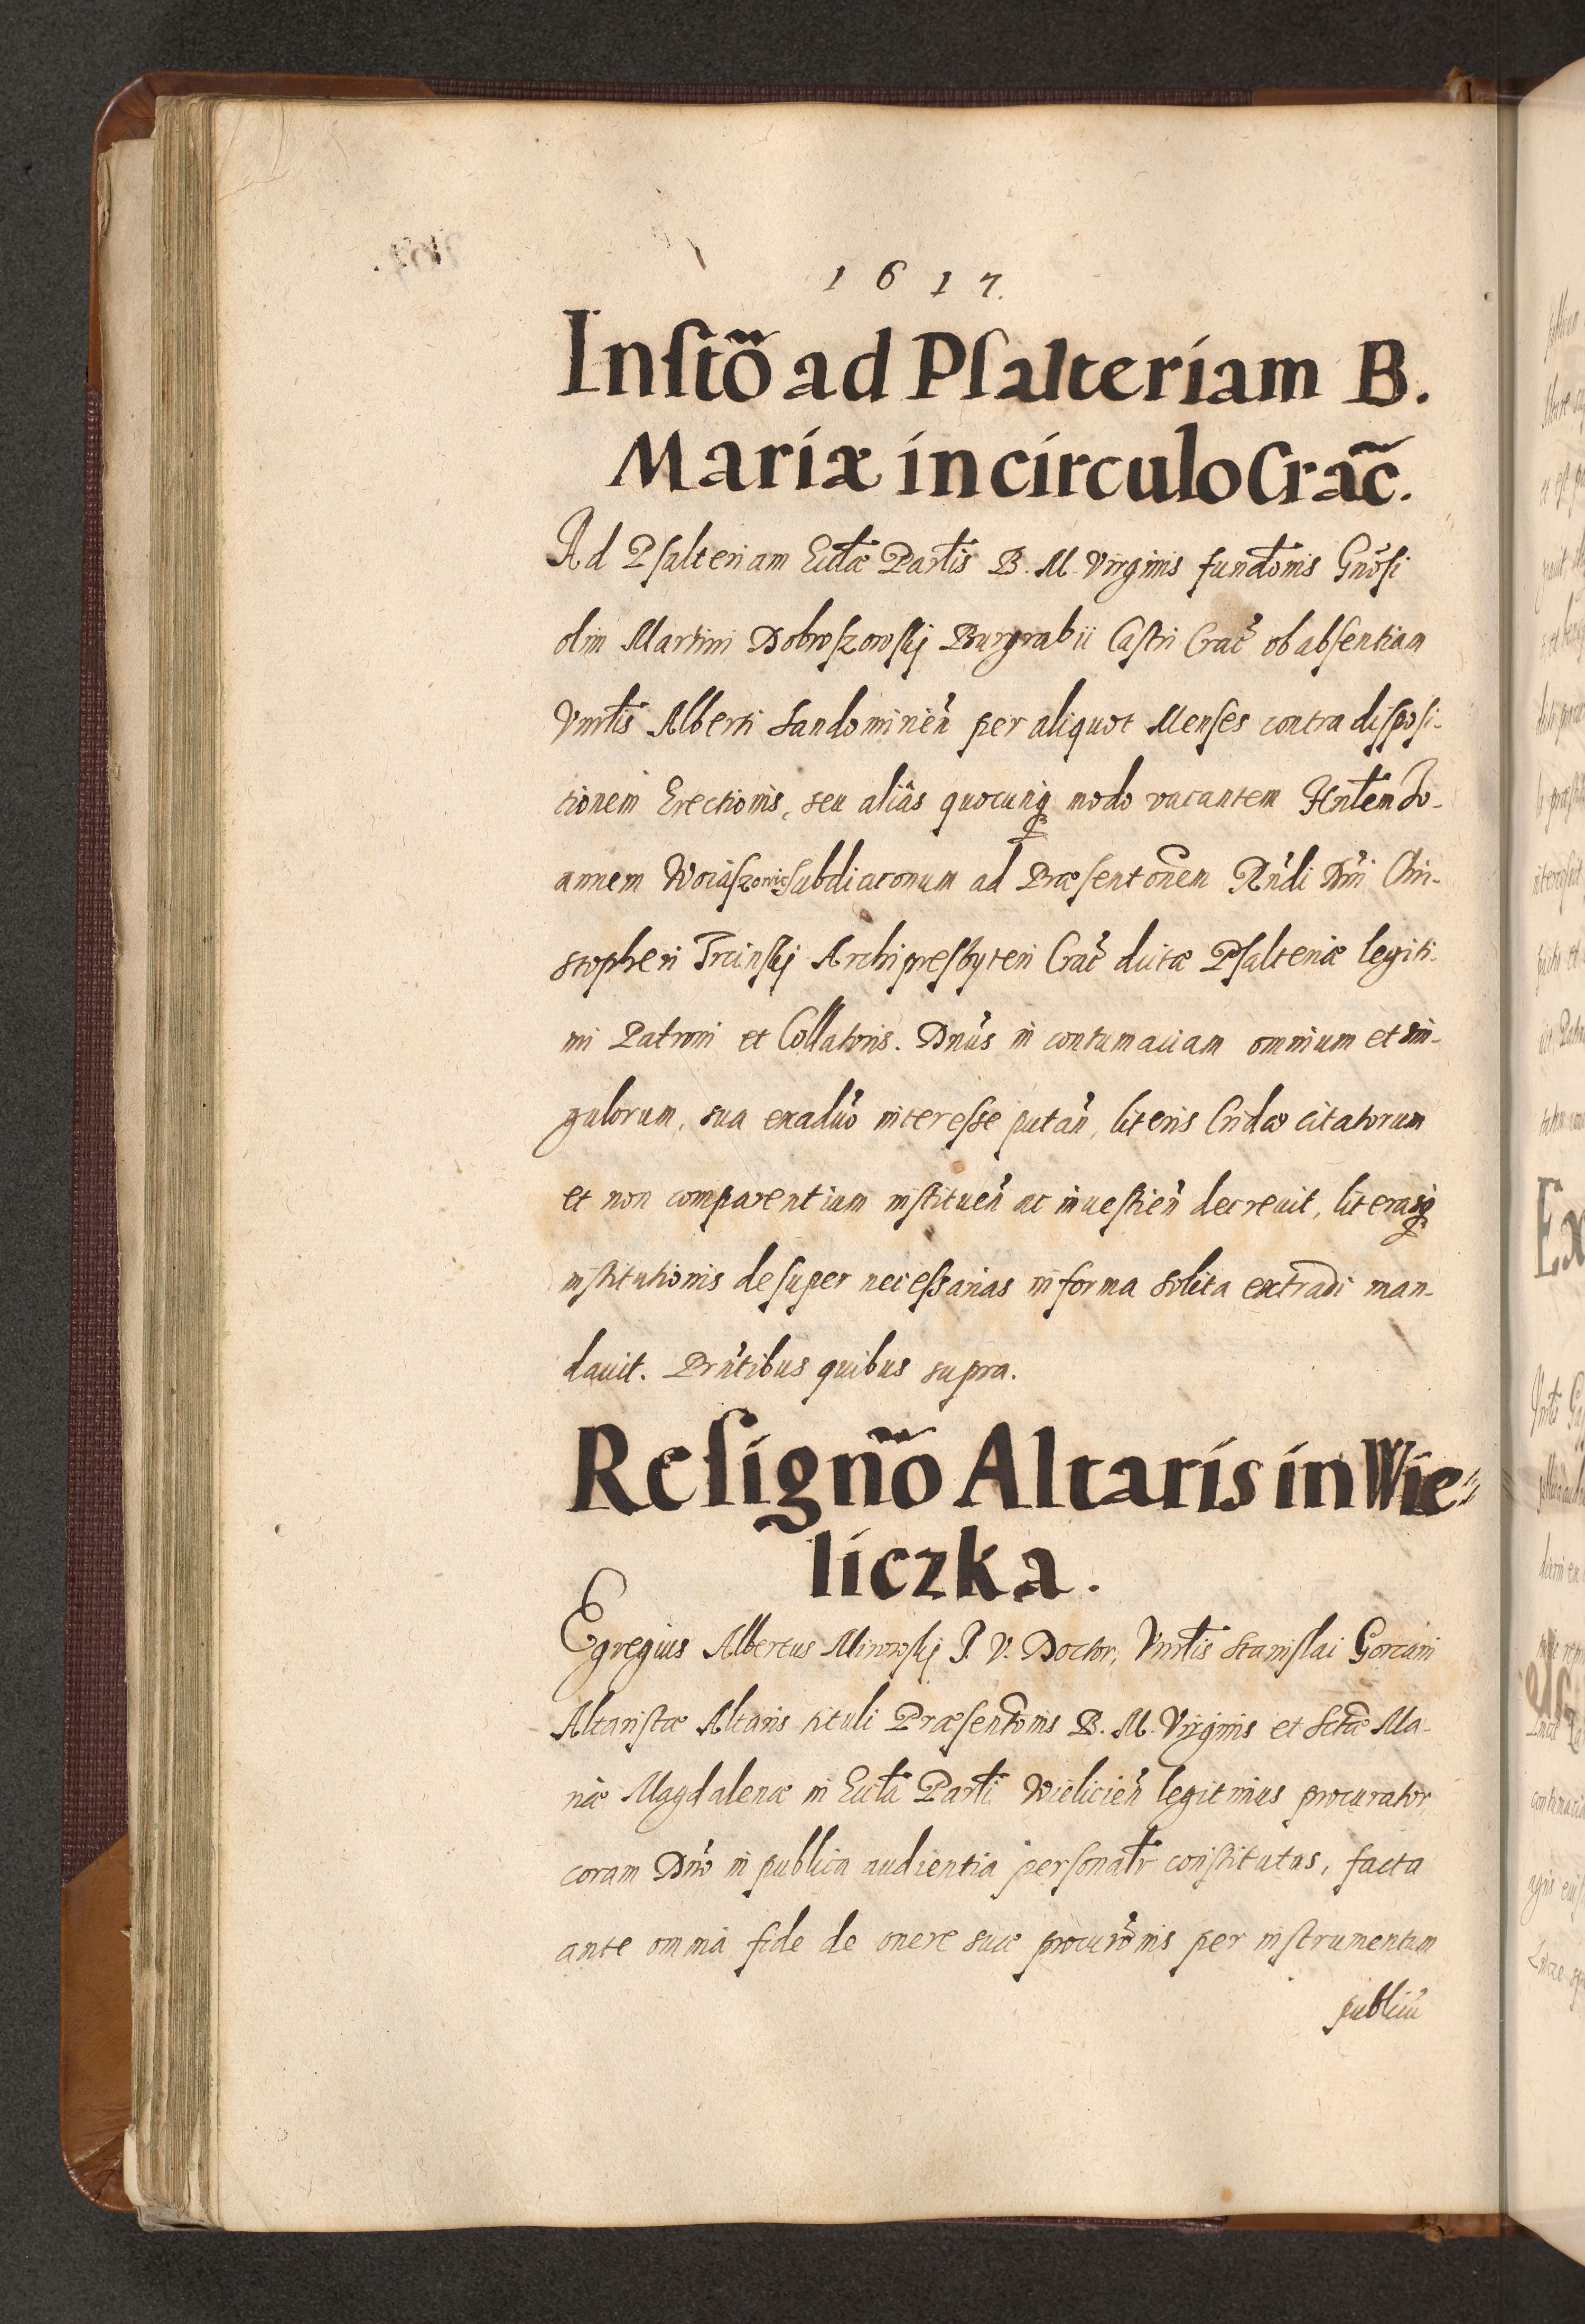 1617.
Inſtõ ad Pſalteriam B.
Mariæ in circulo Crac̃.
Ad Pſalteriam Eccl̃æ Parl̃is B. M. Virginis fundõnis Gnõſi
olim Martini Dobroſzowſkj Burgrabii Caſtri Crac̃ ob abſentiam
Vnrl̃is Alberti Sandomirień per aliquot Menſes contra diſpoſi-
tionem Erectionis, seu aliâs quocunq̃ modo vacantem Hnl̃em Jo-
annem Woiaſzowic subdiaconum ad Præſentõnem Rñdi Dñi Chri-
stopheri Trcinſkj Archipreſbyteri Crac̃ dictæ Pſalteriæ legiti-
mi Patroni et Collatoris. Dnũs in contumaciam omnium et sin-
gulorum, sua exadũo intereſse putañ, literis Cridæ citatorum
et non comparentium inſtitueñ ac inueſtieñ decreuit, literasq̃
inſtitutionis deſuper neceſsarias in forma solita extradi man-
dauit. Prñtibus quibus supra.
Reſigñõ Altaris in Wie-
liczka.
Egregius Albertus Mirowſkj J. V. Doctor, Vnrl̃is Staniſlai Gorcani
Altariſtæ Altaris tituli Præſentõnis B. M. Virginis et Sctæ Ma-
riæ Magdalenæ in Eccl̃a Parl̃i Wielicień legitimus procurator,
coram Dnõ in publica audientia perſonal̃r conſtitutus, facta
ante omnia fide de onere suæ procurõnis per inſtrumentum
publicũ